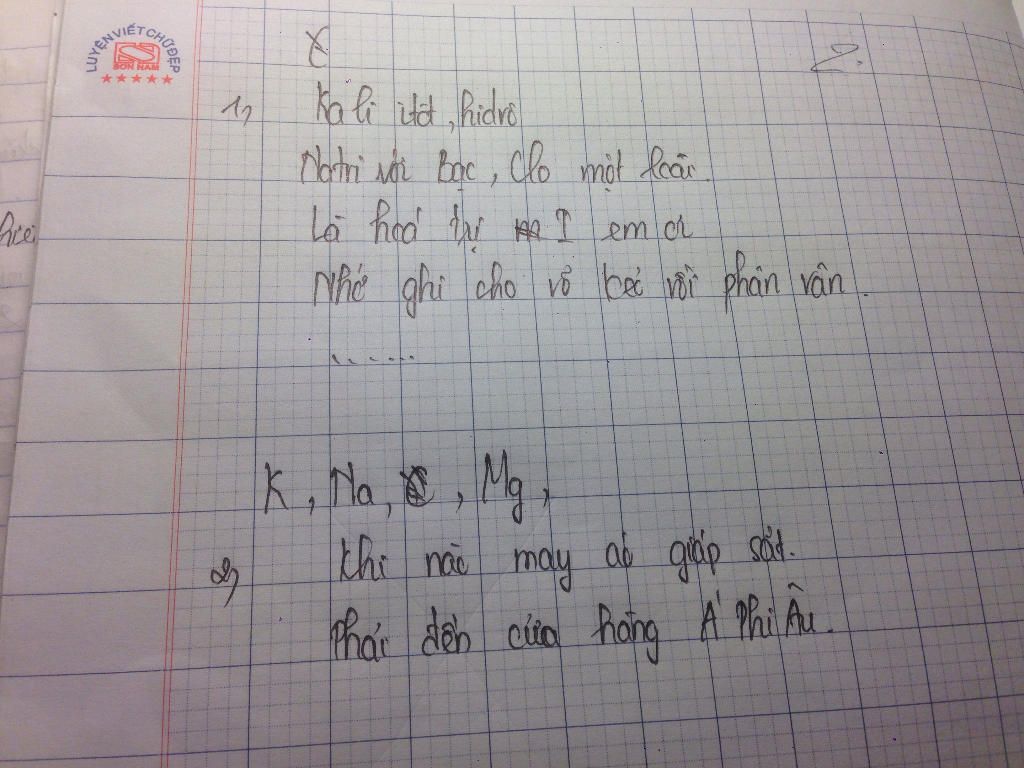 LUYỆN VIẾT CHỮ ĐẸP
SƠN NAM
2.
1, Kali iốt, hiđrô
Natri với Bạc, Clo một loài.
Là hoá trị I em ơi
Nhớ ghi cho rõ kẻo rồi phân vân.
......
K, Na, , Mg,
2, Khi nào may áo giáp sắt.
Phải đến cửa hàng Á Phi Âu.